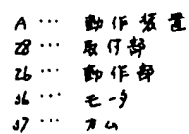 A … 動作装置
28 … 取付部
26 … 動作部
36 … モータ
37 … カム